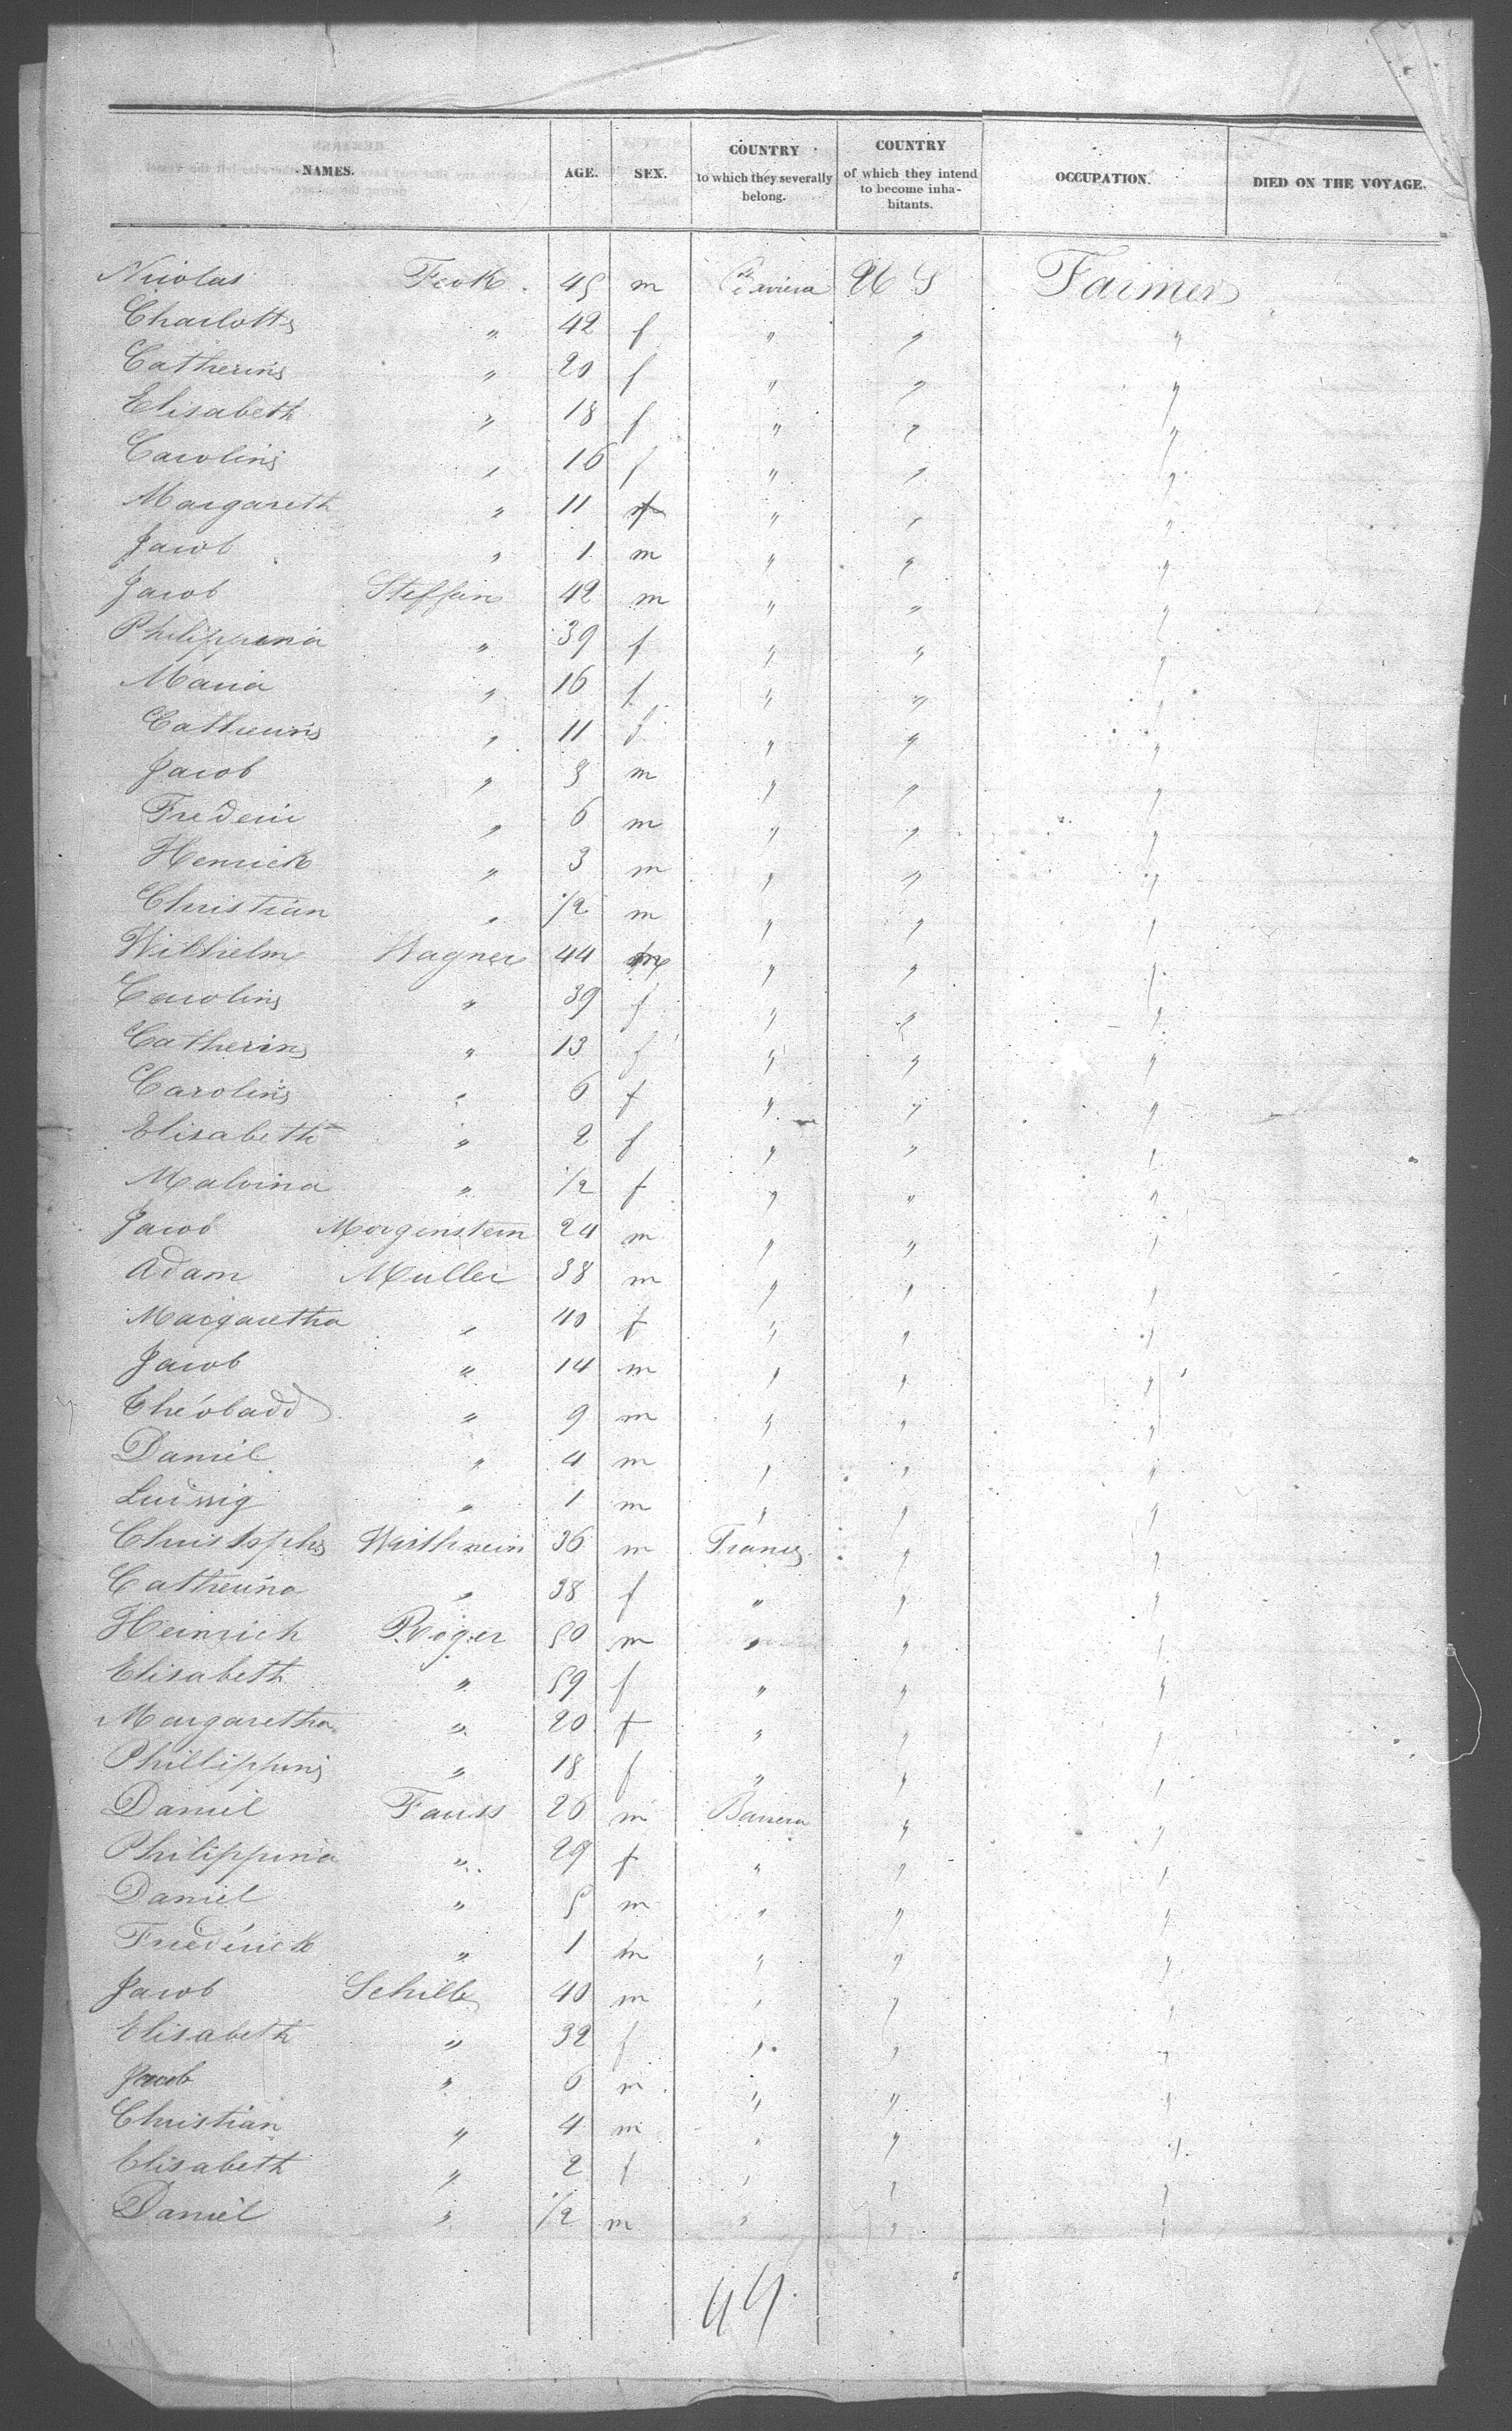 NAMES. AGE. SEX. COUNTRY to which they severally belong. COUNTRY of which they intend to become inhabitants. OCCUPATION. DIED ON THE VOYAGE.
Nicolas 45 m U S Farmer
Charlotte " 42 f " " "
Catherine " 20 f " " "
Elisabeth " 18 f " " "
Caroline " 16 f " " "
Margareth " 11 f " " "
Jacob " 1 m " " "
Jacob Steffan 42 m " " "
Philippina " 39 f " " "
Maria " 16 f " " "
Catherine " 11 f " " "
Jacob " m " " "
Frederic " 6 m " " "
Henrick " 3 m " " "
Christian " 1/2 m " " "
Wilhelm Wagner 44 m " " "
Caroline " 39 f " " "
Catherine " 13 f " " "
Caroline " 6 f " " "
Elisabeth " 2 f " " "
Malvina " 1/2 f " " "
Jacob Morgenstern 24 m " " "
Adam Muller 38 m " " "
Margaretha " 40 f " " "
Jacob " 14 m " " "
Théobald " 9 m " " "
Daniel " 4 m " " "
Ludwig " 1 m " " "
Christophe 36 m France " "
Catherina " 38 f " " "
Heinrich Roger 50 m " " "
Elisabeth " 59 f " " "
Margaretha " 20 f " " "
Phillippine " 18 f " " "
Daniel Fauss 26 m Baviera " "
Philippina " 29 f " " "
Daniel " 5 m " " "
Frederick " 1 m " " "
Jacob Schille 40 m " " "
Elisabeth " 32 f " " "
Jacob " 6 m " " "
Christian " 4 m " " "
Elisabeth " 2 f " " "
Daniel " 1/2 m " " "
44